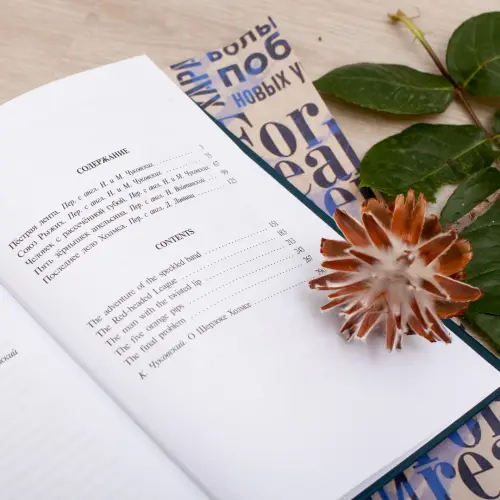 ХАРА
ВОЛЫ
ПОБ
НОВЫХ У
For
real
СОДЕРЖАНИЕ
Пёстрая лента. Пер. с англ. Н. и М. Чуковских
Союз Рыжих. Пер. с англ. Н. и М. Чуковских
Человек с рассечённой губой. Пер. с англ. Н. и М. Чуковских 67
Пять зёрнышек апельсина. Пер. с англ. Н. Войтинской 99
Последнее дело Холмса. Пер. с англ. Д. Лившиц 125
CONTENTS
The adventure of the speckled band 151
The Red-headed League 183
The man with the twisted lip 213
The five orange pips 243
The final problem 267
К. Чуковский. О Шерлоке Холмсе